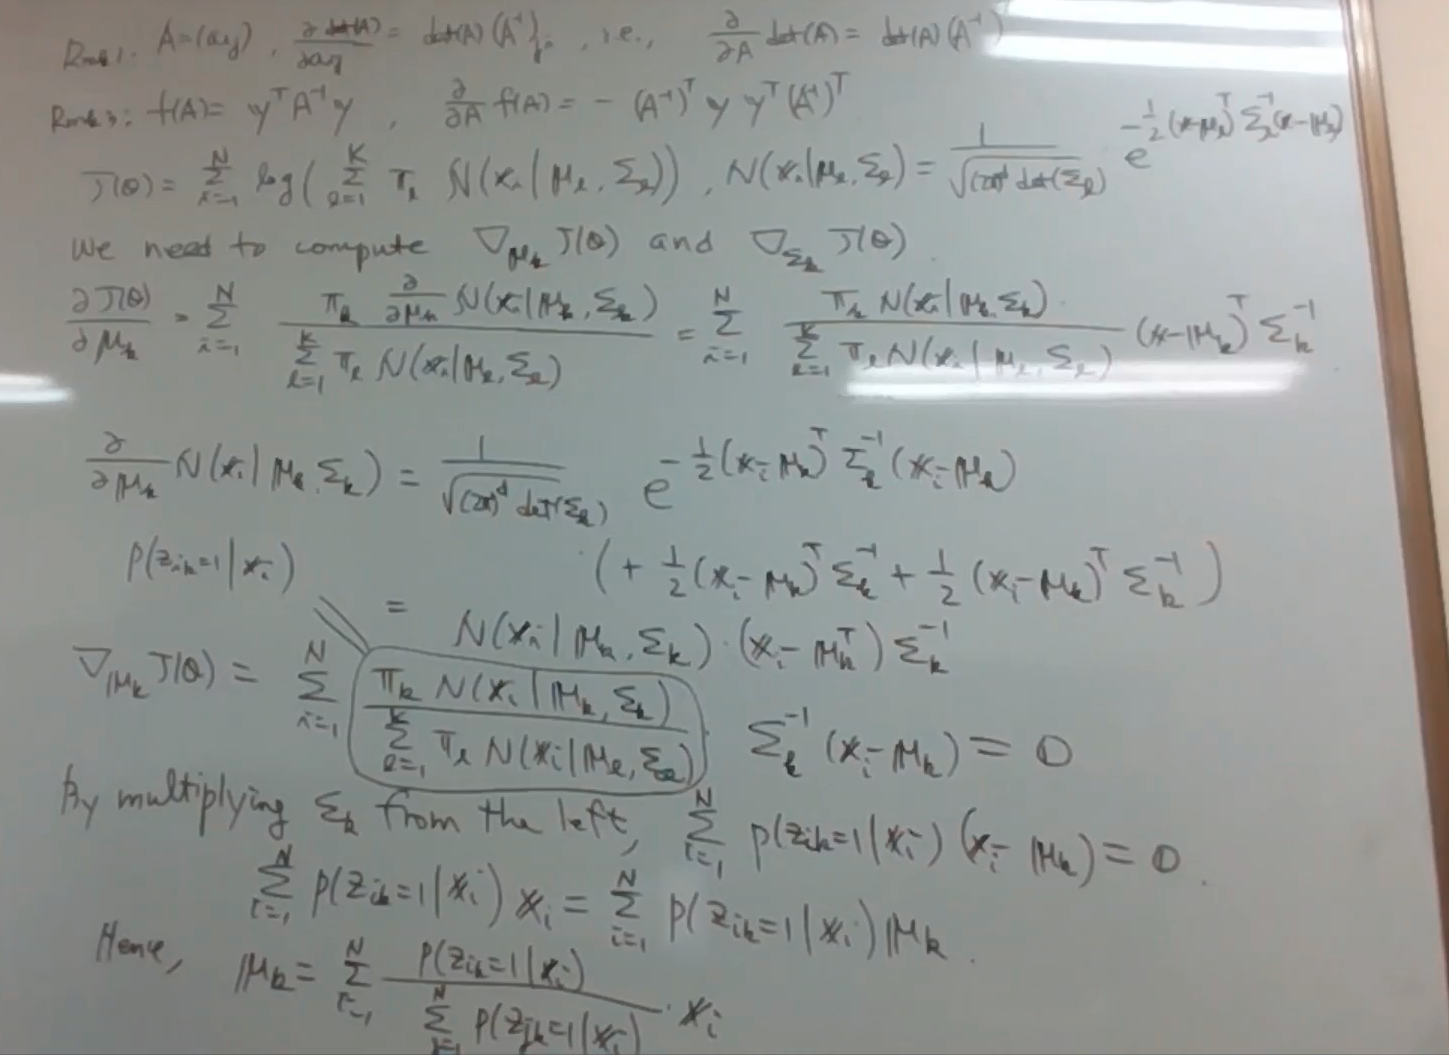 Rmk 1: A=(a_ij), ∂det(A)/∂a_ij = det(A)(A^-1)_ji, i.e., ∂/∂A det(A) = det(A)(A^-1)
Rmk 3: f(A) = y^T A^-1 y, ∂/∂A f(A) = -(A^-1)^T y y^T (A^-1)^T
J(θ) = Σ_{i=1}^N log(Σ_{ℓ=1}^K π_ℓ N(x_i|μ_ℓ, Σ_ℓ)), N(x_i|μ_ℓ, Σ_ℓ) = 1/√((2π)^d det(Σ_ℓ)) e^{-1/2 (x-μ_ℓ)^T Σ_ℓ^-1 (x-μ_ℓ)}
We need to compute ∇_{μ_k} J(θ) and ∇_{Σ_k} J(θ)
∂J(θ)/∂μ_k = Σ_{i=1}^N (π_k ∂/∂μ_k N(x_i|μ_k, Σ_k)) / (Σ_{ℓ=1}^K π_ℓ N(x_i|μ_ℓ, Σ_ℓ)) = Σ_{i=1}^N (π_k N(x_i|μ_k, Σ_k)) / (Σ_{ℓ=1}^K π_ℓ N(x_i|μ_ℓ, Σ_ℓ)) (x-μ_k)^T Σ_k^-1
∂/∂μ_k N(x_i|μ_k, Σ_k) = 1/√((2π)^d det(Σ_k)) e^{-1/2 (x_i-μ_k)^T Σ_k^-1 (x_i-μ_k)}
p(z_ik=1|x_i) · (+ 1/2 (x_i-μ_k)^T Σ_k^-1 + 1/2 (x_i-μ_k)^T Σ_k^-1)
= N(x_i|μ_k, Σ_k) · (x_i-μ_k^T) Σ_k^-1
∇_{μ_k} J(θ) = Σ_{i=1}^N (π_k N(x_i|μ_k, Σ_k)) / (Σ_{ℓ=1}^K π_ℓ N(x_i|μ_ℓ, Σ_ℓ)) · Σ_k^-1 (x_i-μ_k) = 0
By multiplying Σ_k from the left, Σ_{i=1}^N p(z_ik=1|x_i)(x_i-μ_k) = 0.
Σ_{i=1}^N p(z_ik=1|x_i) x_i = Σ_{i=1}^N p(z_ik=1|x_i) μ_k.
Hence, μ_k = Σ_{i=1}^N p(z_ik=1|x_i) / (Σ_{j=1}^N p(z_jk=1|x_i)) · x_i